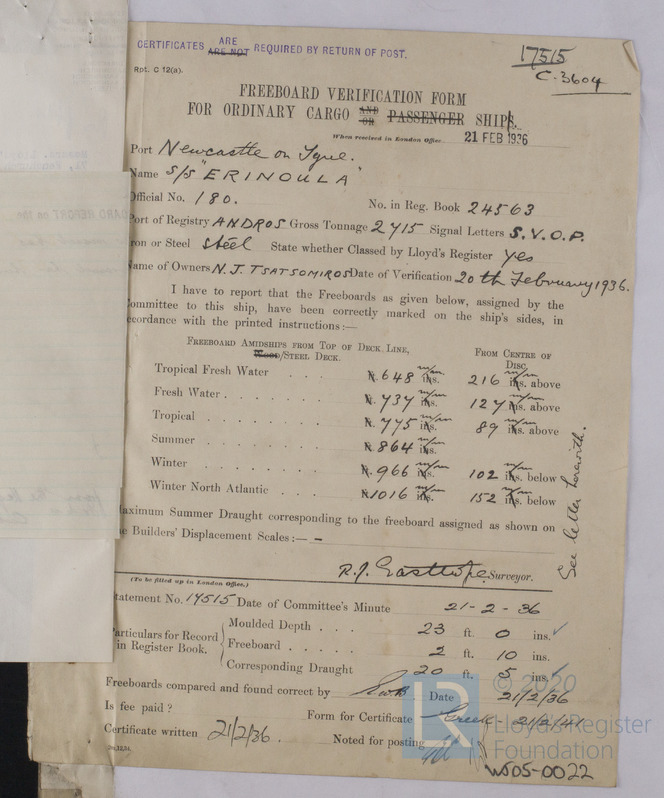 CERTIFICATES ARE ARE NOT REQUIRED BY RETURN OF POST.
17515
C-3604
Rpt. C 12(a).
FREEBOARD VERIFICATION FORM
FOR ORDINARY CARGO AND OR PASSENGER SHIPS.
When received in London Office 21 FEB 1936
Port Newcastle on Tyne.
Name S/S "ERINOULA"
Official No. 180. No. in Reg. Book 24563
Port of Registry ANDROS Gross Tonnage 2415 Signal Letters S.V.O.P.
Iron or Steel Steel State whether Classed by Lloyd's Register Yes
Name of Owners N.J. TSATSOMIROS Date of Verification 20th February 1936.
I have to report that the Freeboards as given below, assigned by the
Committee to this ship, have been correctly marked on the ship's sides, in
accordance with the printed instructions:—
FREEBOARD AMIDSHIPS FROM TOP OF DECK LINE, FROM CENTRE OF
WOOD/STEEL DECK. DISC.
Tropical Fresh Water . . . 648 m/m ins. 216 m/m ins. above
Fresh Water . . . . 737 m/m ins. 127 m/m ins. above
Tropical . . . . . 775 m/m ins. 89 m/m ins. above
Summer . . . . . 864 m/m ins.
Winter . . . . . 966 m/m ins. 102 m/m ins. below
Winter North Atlantic . . . 1016 m/m ins. 152 m/m ins. below
See letter herewith.
Maximum Summer Draught corresponding to the freeboard assigned as shown on
the Builders' Displacement Scales:— –
R.J. Easthope. Surveyor.
(To be filled up in London Office.)
Statement No. 17515 Date of Committee's Minute 21-2-36
Particulars for Record in Register Book.
Moulded Depth . . . 23 ft. 0 ins.
Freeboard . . . . . 2 ft. 10 ins.
Corresponding Draught 20 ft. 5 ins.
Freeboards compared and found correct by Date 21/2/36
Is fee paid ? Form for Certificate Greek - 21/2/41
Certificate written 21/2/36. Noted for posting
W505-0022
© 2020
Lloyd's Register
Foundation